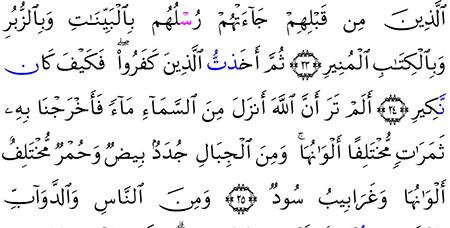 ٱلَّذِينَ مِن قَبْلِهِمْ جَآءَتْهُمْ رُسْلُهُم بِٱلْبَيِّنَٰتِ وَبِٱلزُّبُرِ
وَبِٱلْكِتَٰبِ ٱلْمُنِيرِ ٢٣ ثُمَّ أَخَذتُّ ٱلَّذِينَ كَفَرُواْۖ فَكَيْفَ كَان
نَّكِيرِ ٢٤ أَلَمْ تَرَ أَنَّ ٱللَّهَ أَنزَلَ مِنَ ٱلسَّمَآءِ مَآءٗ فَأَخْرَجْنَا بِهِۦ
ثَمَرَٰتٖ مُّخْتَلِفًا أَلْوَٰنُهَاۚ وَمِنَ ٱلْجِبَالِ جُدَدُۢ بِيضٞ وَحُمْرٞ مُّخْتَلِفٌ
أَلْوَٰنُهَا وَغَرَابِيبُ سُودٞ ٢٥ وَمِنَ ٱلنَّاسِ وَٱلدَّوَآبِّ